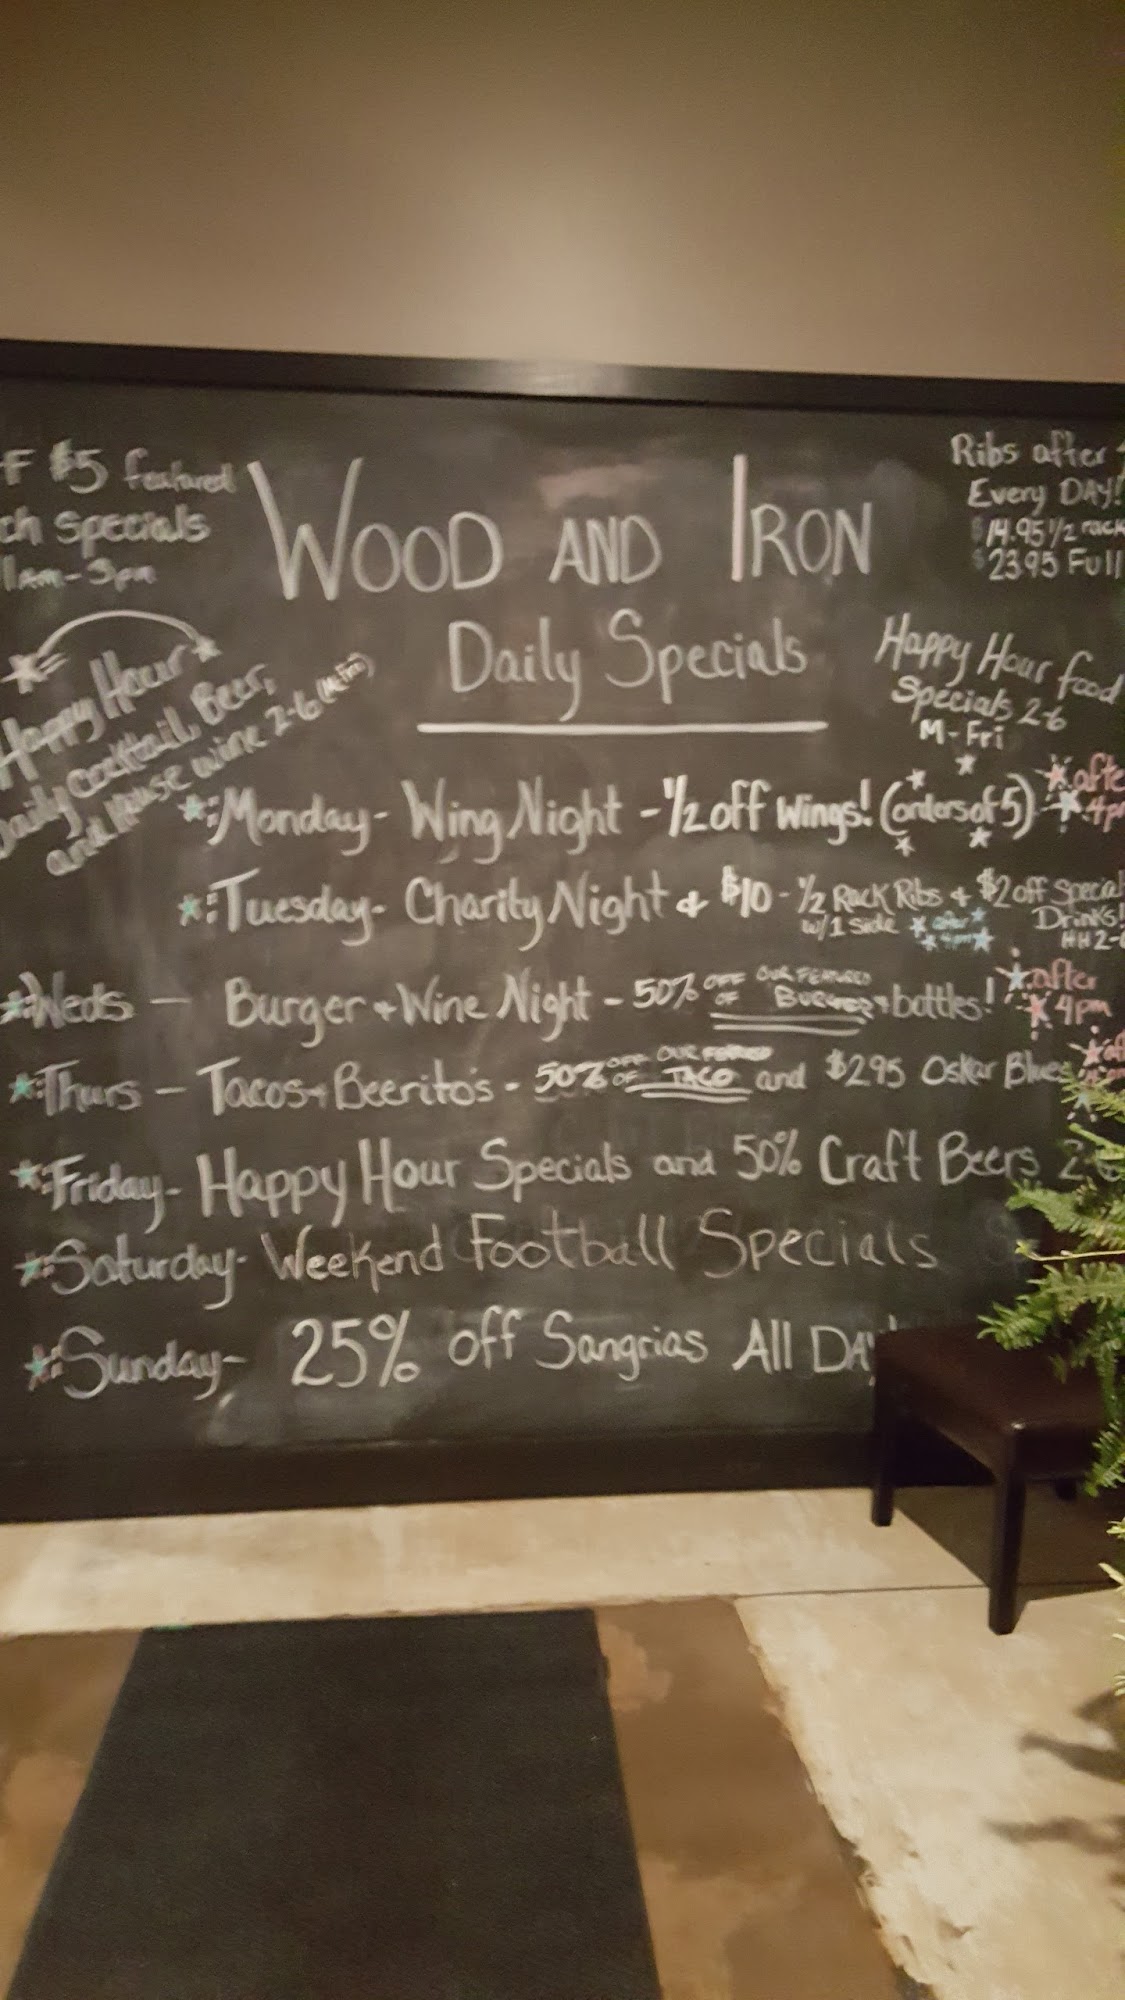 $5 featured
specials
WOOD AND IRON
Daily Specials
Ribs after
Every DAY!
$14.95 1/2 rack
$23.95 Full
Happy Hour
Daily cocktail, Beer,
and House wine 2-6
Happy Hour food
Specials 2-6
M-Fri
Monday- Wing Night - 1/2 off Wings! (orders of 5)
Tuesday- Charity Night + $10 - 1/2 Rack Ribs + $2 off Special
w/1 Side after 4pm
Drinks!
HH 2-6
Weds - Burger + Wine Night - 50% OFF OF OUR FEATURED BURGER + bottles! after 4pm
Thurs - Tacos + Beerito's - 50% OFF OF OUR FEATURED TACO and $2.95 Oskar Blues
Friday- Happy Hour Specials and 50% Craft Beers
Saturday- Weekend Football Specials
Sunday- 25% off Sangrias All DAY